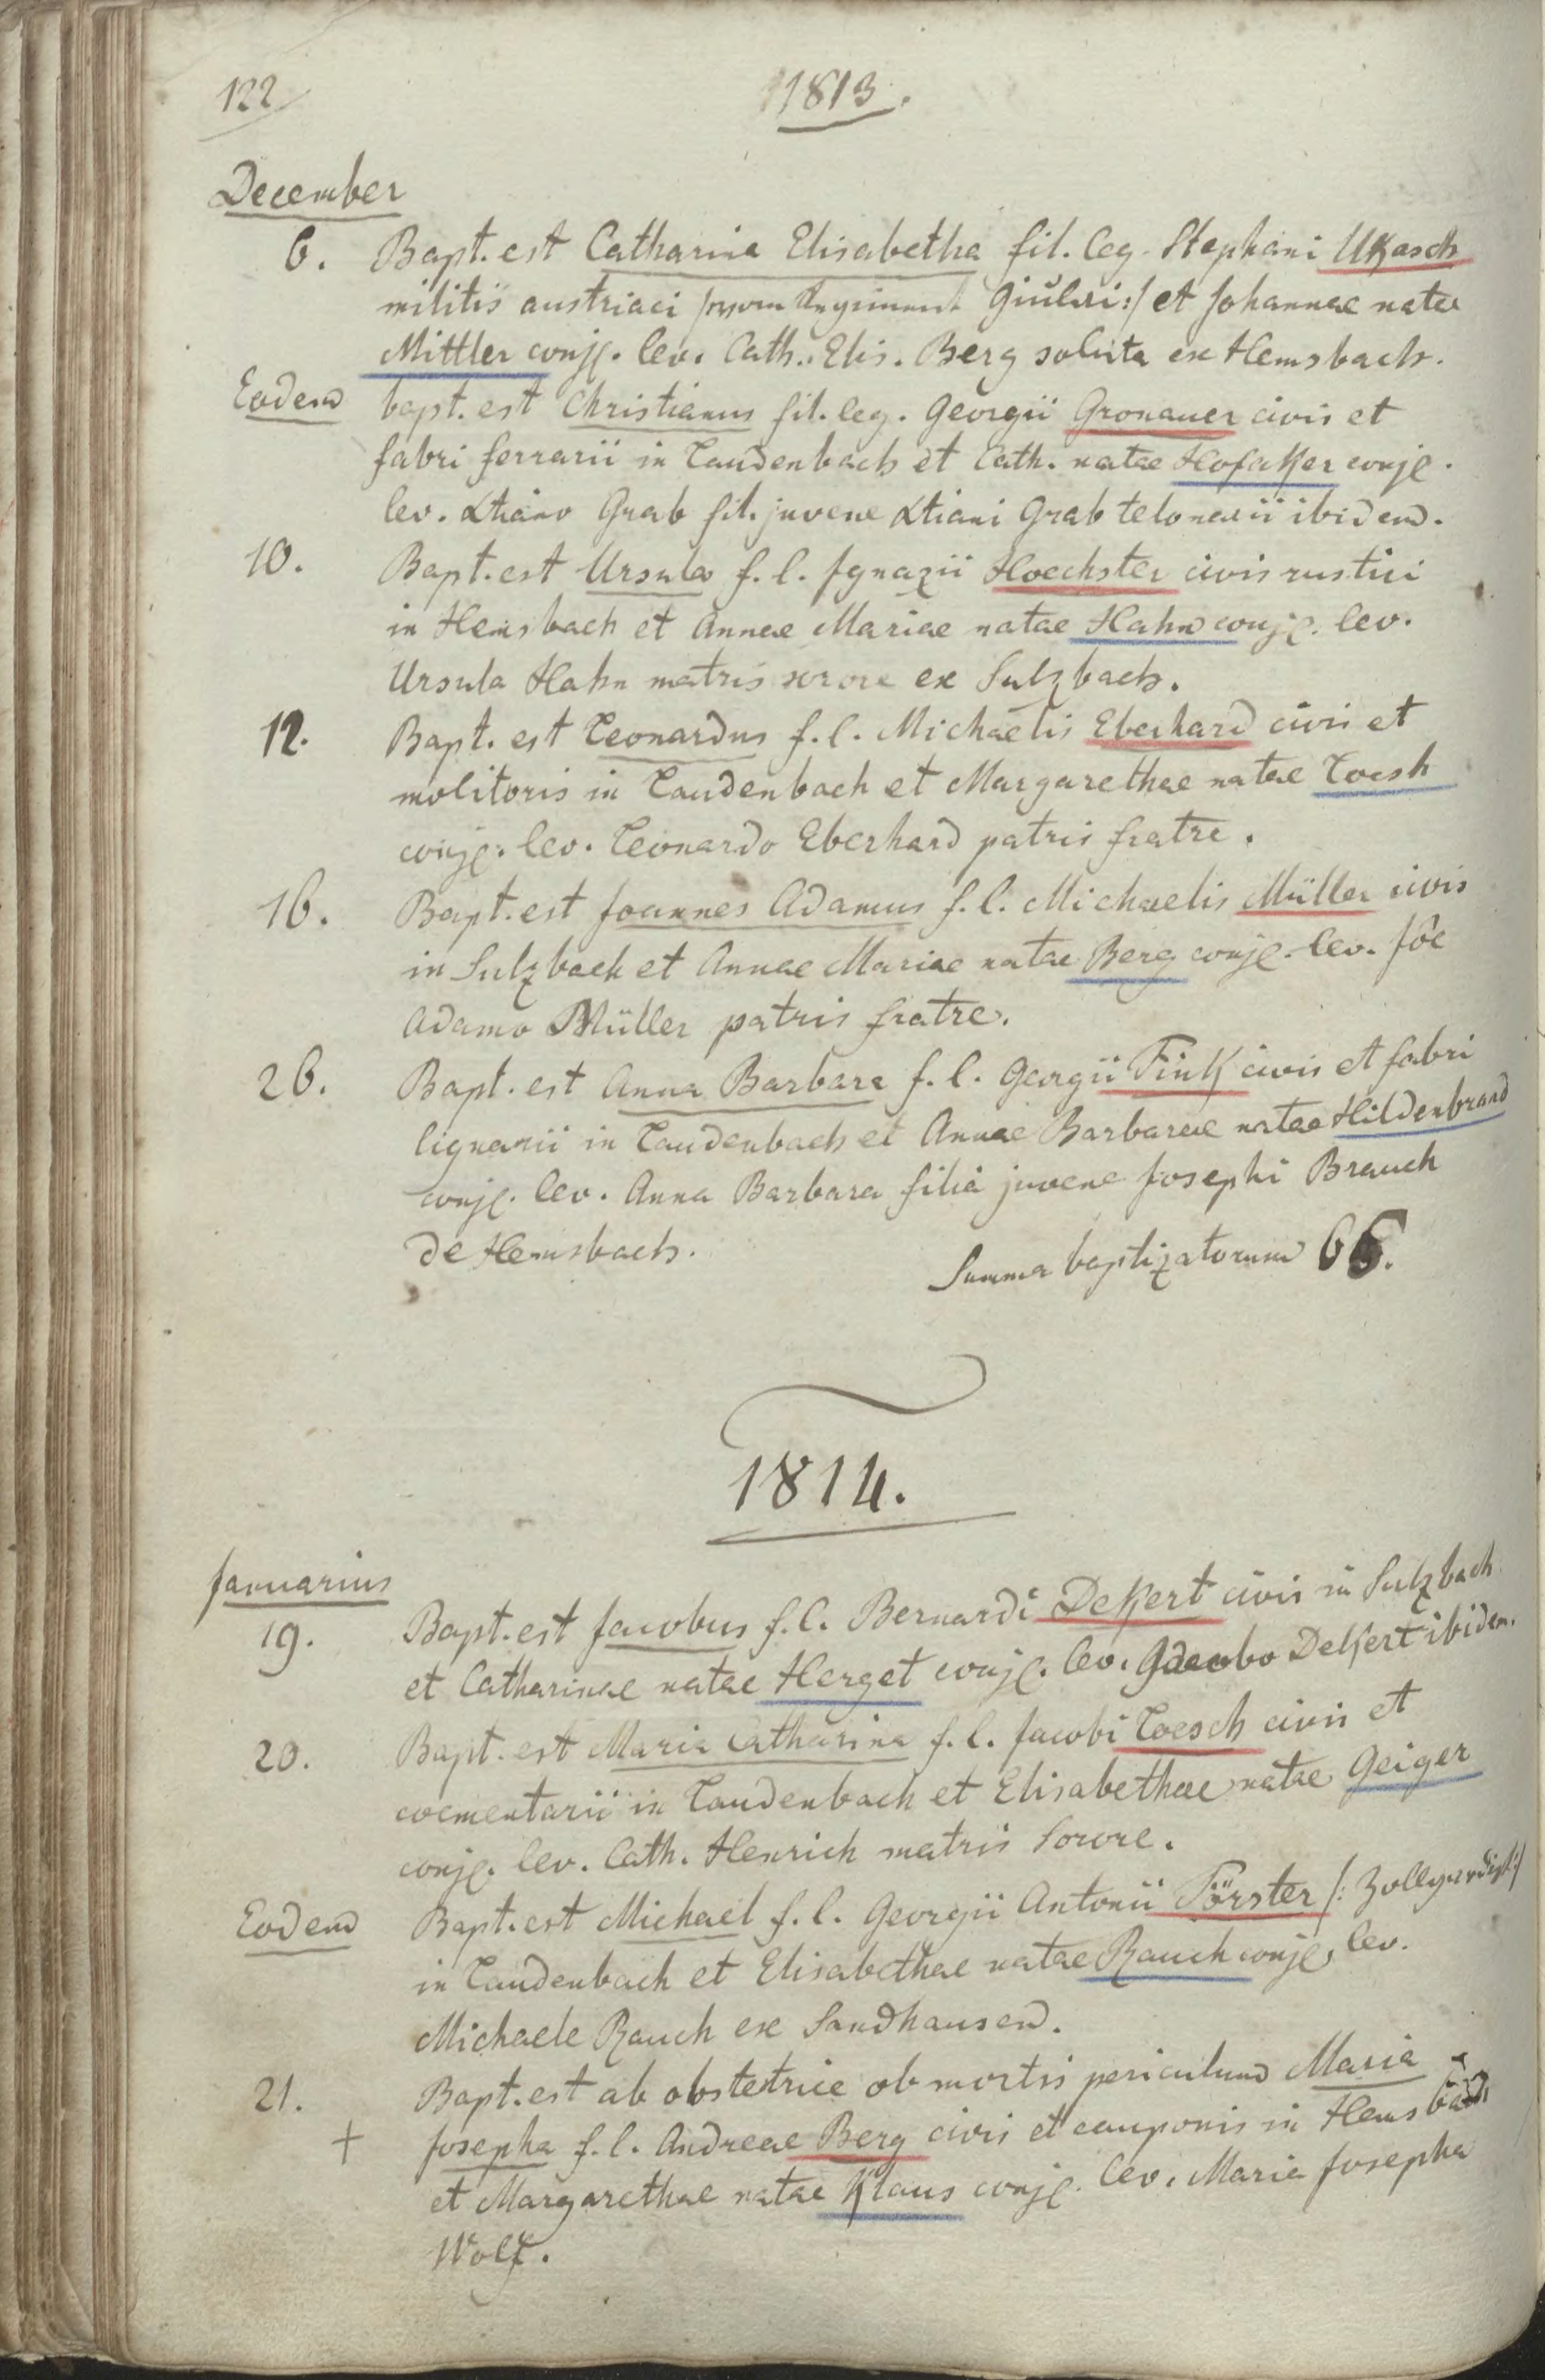 122
1813.
December
6. Bapt. est Catharina Elisabetha fil. leg. Stephani Ukasch
militis austriaci /: vom Regiment Giulai :/ et Johannae natae
Mittler conjg. lev. Cath. Elis. Berg soluta ex Hemsbach.
Eodem bapt. est Christianus fil. leg. Georgii Gronauer civis et
fabri ferrarii in Laudenbach et Cath. natae Hofaker conjg.
lev. Xtiano Grab fil. juvene Xtiani Grab telonarii ibidem.
10. Bapt. est Ursula f. l. Ignazii Hoechster civis rustici
in Hemsbach et Annae Mariae natae Hahn conjg. lev.
Ursula Hahn matris sorore ex Sulzbach.
12. Bapt. est Leonardus f. l. Michaelis Eberhard civis et
molitoris in Laudenbach et Margarethae natae Loesh
conjg. lev. Leonardo Eberhard patris fratre.
16. Bapt. est Joannes Adamus f. l. Michaelis Müller civis
in Sulzbach et Annae Mariae natae Berg conjg. lev. Jōe
Adamo Müller patris fratre.
26. Bapt. est Anna Barbara f. l. Georgii Fink civis et fabri
lignarii in Laudenbach et Annae Barbarae natae Hildenbrand
conjg. lev. Anna Barbara filia juvene Josephi Brauch
de Hemsbach.
Summa baptizatorum 66.
1814.
Januarius
19. Bapt. est Jacobus f. l. Bernardi Dekert civis in Sulzbach
et Catharinae natae Herget conjg. lev. Jacobo Dekert ibidem.
20. Bapt. est Maria Catharina f. l. Jacobi Loesch civis et
coementarii in Laudenbach et Elisabethae natae Geiger
conjg. lev. Cath. Henrich matris sorore.
Eodem Bapt. est Michael f. l. Georgii Antonii Förster /: Zollgardist :/
in Laudenbach et Elisabethae natae Rauch conjg. lev.
Michaele Rauch ex Sandhausen.
21. Bapt. est ab obstetrice ob mortis periculum Maria
+ Josepha f. l. Andreae Berg civis et cauponis in Hemsbach
et Margarethae natae Klaus conjg. lev. Maria Josepha
Wolf.